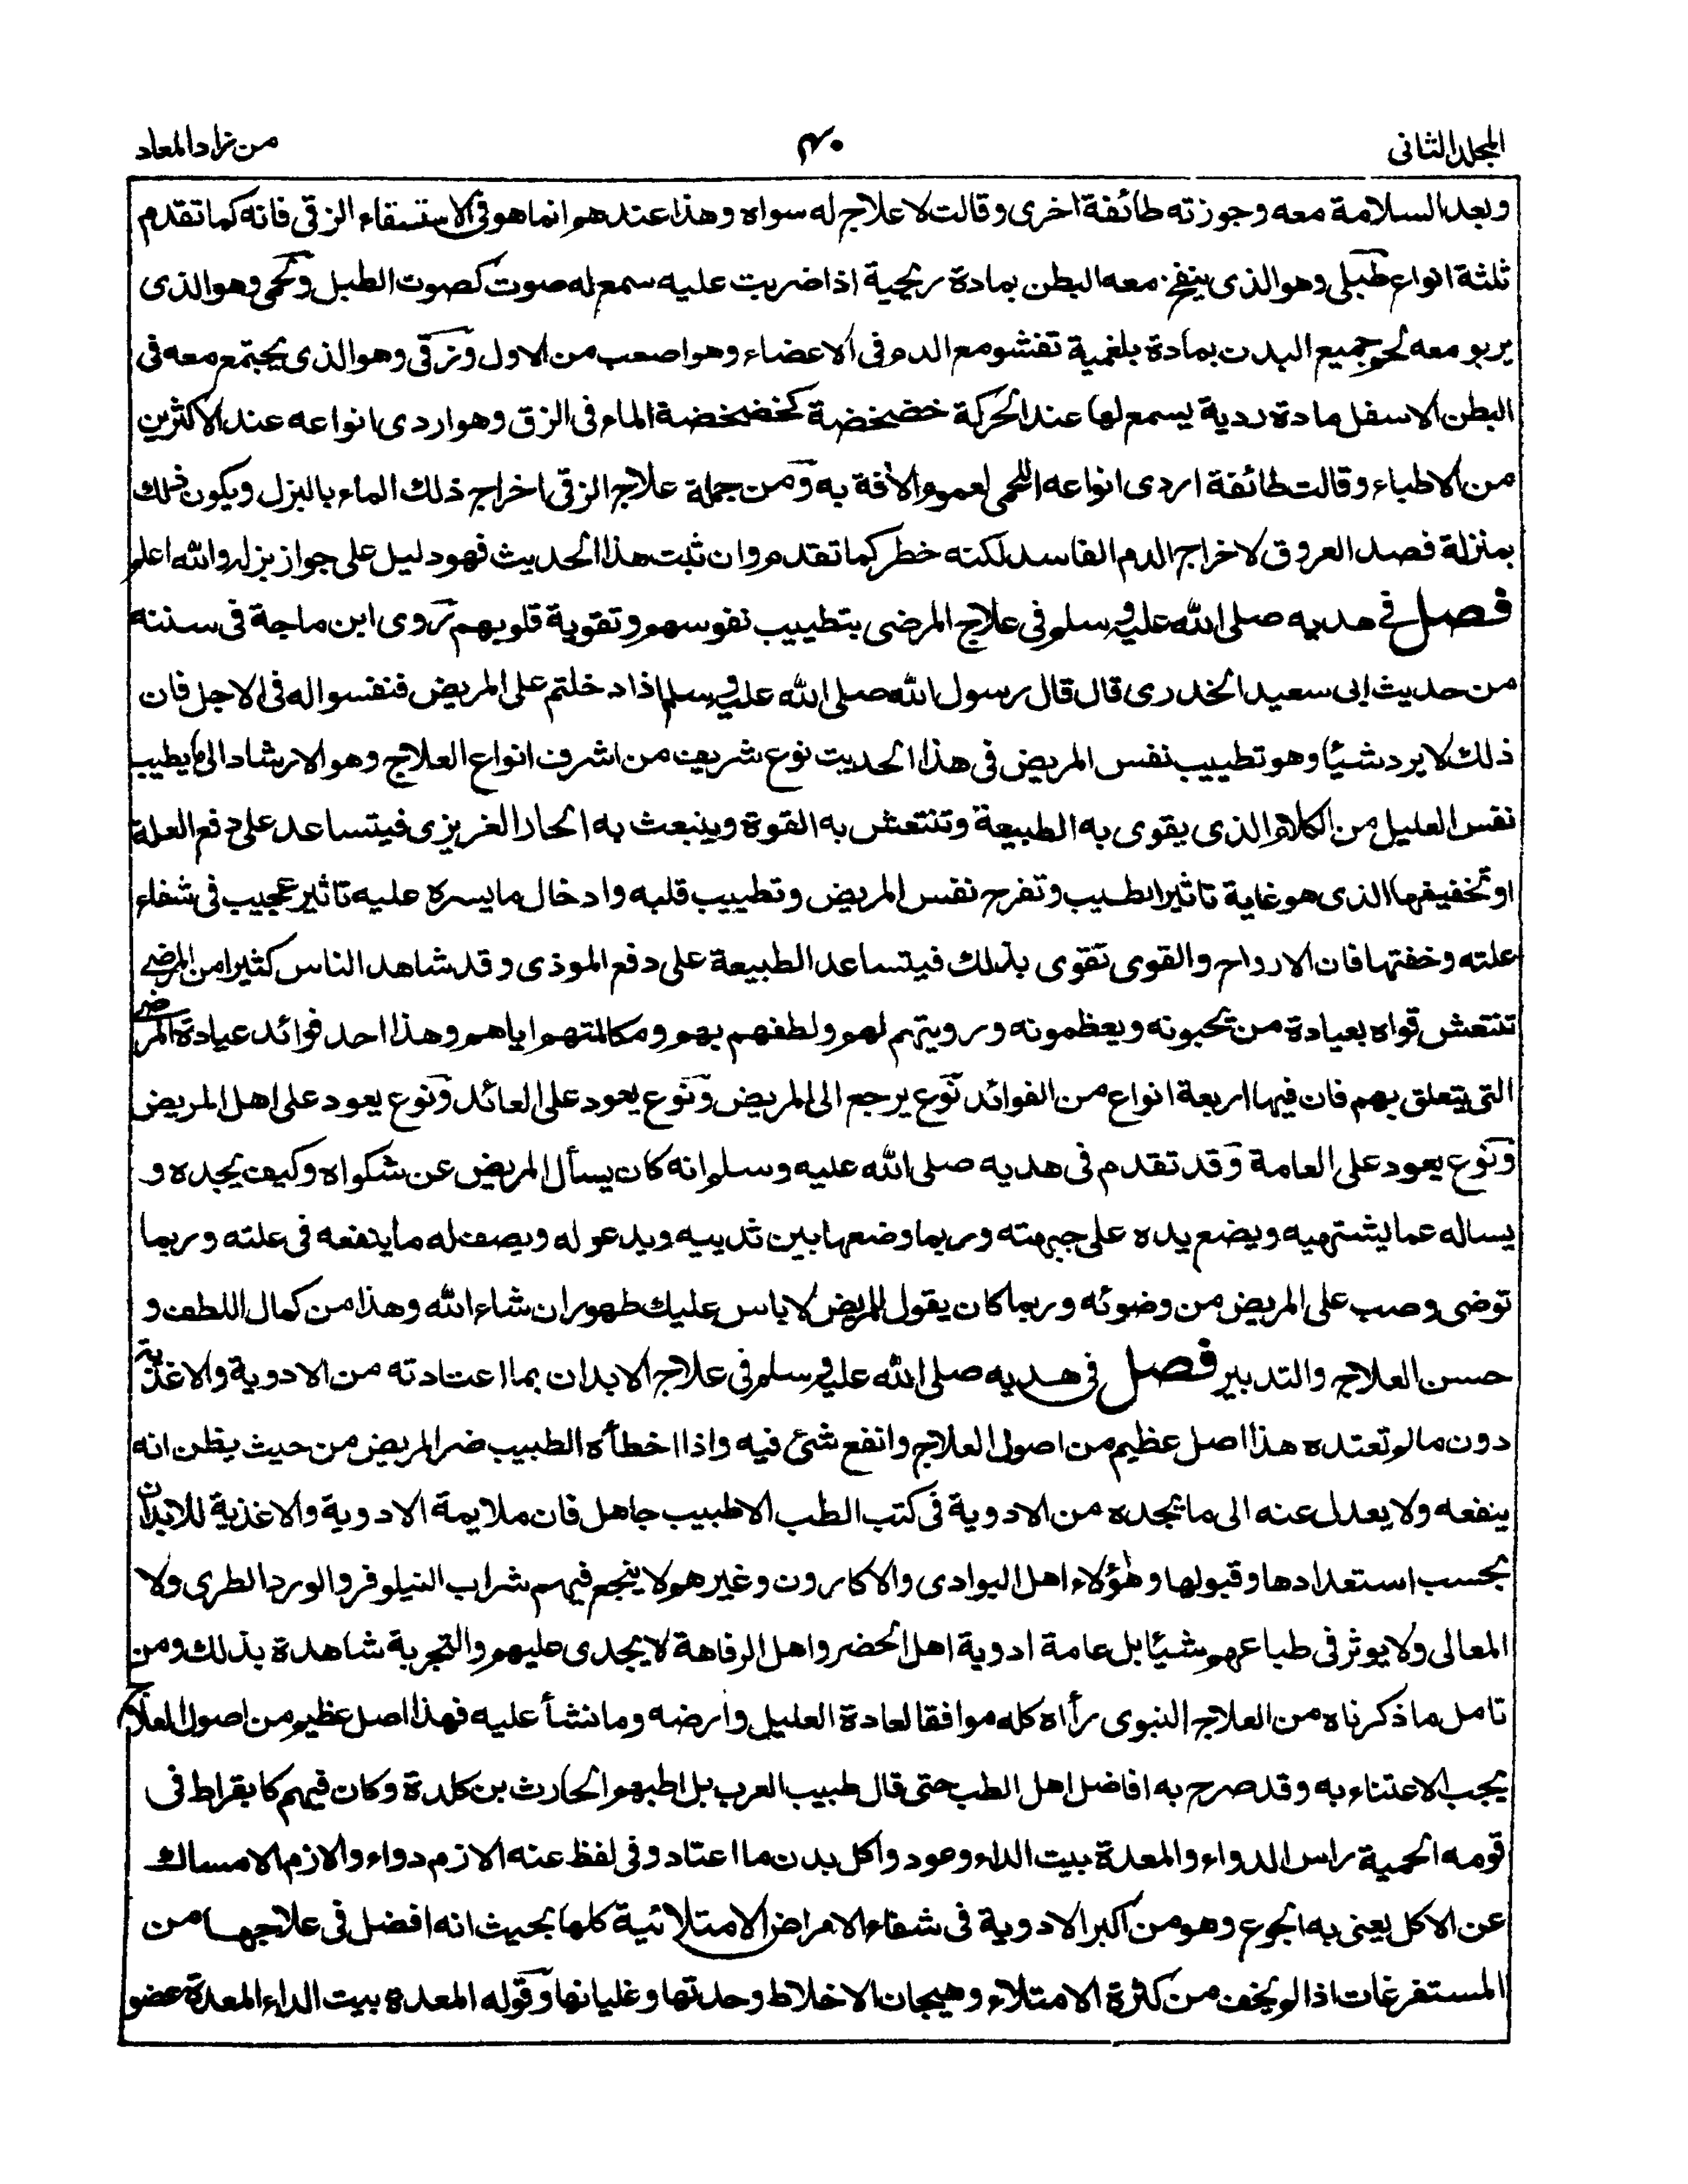 المجلد الثانى
٤٠
من زاد المعاد
وبعد السلامة معه وجوزته طائفة اخرى وقالت لا علاج له سواه وهذا عندهم انما هو فى الاستسقاء الزقى فانه كما تقدم
ثلثة انواع طبلى وهو الذى ينفخ معه البطن بمادة ريحية اذا ضربت عليه سمع له صوت كصوت الطبل ولحمى وهو الذى
يربو معه لحم جميع البدن بمادة بلغمية تفشو مع الدم فى الاعضاء وهو اصعب من الاول وزقى وهو الذى يجتمع معه فى
البطن الاسفل مادة ردية يسمع لها عند الحركة خضخضة كخضخضة الماء فى الزق وهو اردى انواعه عند الاكثرين
من الاطباء وقالت طائفة اردى انواعه اللحمى لعموم الافة به ومن جملة علاج الزقى اخراج ذلك الماء بالبزل ويكون ذلك
بمنزلة فصد العروق لاخراج الدم الفاسد لكنه خطر كما تقدم وان ثبت هذا الحديث فهو دليل على جواز بزله والله اعلم
فصل فى هديه صلى الله عليه وسلم فى علاج المرضى بتطييب نفوسهم وتقوية قلوبهم روى ابن ماجة فى سننه
من حديث ابى سعيد الخدرى قال قال رسول الله صلى الله عليه وسلم اذا دخلتم على المريض فنفسوا له فى الاجل فان
ذلك لا يرد شيئا وهو تطييب نفس المريض فى هذا الحديث نوع شريف من اشرف انواع العلاج وهو الارشاد الى ما يطيب
نفس العليل من الكلام الذى يقوى به الطبيعة وتنتعش به القوة وينبعث به الحار الغريزى فيتساعد على دفع العلة
او تخفيفها الذى هو غاية تاثير الطبيب وتفرح نفس المريض وتطييب قلبه وادخال ما يسره عليه تاثير عجيب فى شفاء
علته وخفتها فان الارواح والقوى تقوى بذلك فيتساعد الطبيعة على دفع الموذى وقد شاهد الناس كثيرا من المرضى
تنتعش قواه بعيادة من يحبونه ويعظمونه ورويتهم لهم ولطفهم بهم ومكالمتهم اياهم وهذا احد فوائد عيادة المرضى
التى يتعلق بهم فان فيها اربعة انواع من الفوائد نوع يرجع الى المريض ونوع يعود على العائد ونوع يعود على اهل المريض
ونوع يعود على العامة وقد تقدم فى هديه صلى الله عليه وسلم انه كان يسأل المريض عن شكواه وكيف يجده و
يساله عما يشتهيه ويضع يده على جبهته وربما وضعها بين ثدييه ويدعو له ويصف له ما ينفعه فى علته وربما
توضى وصب على المريض من وضوئه وربما كان يقول للمريض لا باس عليك طهور ان شاء الله وهذا من كمال اللطف و
حسن العلاج والتدبير فصل فى هديه صلى الله عليه وسلم فى علاج الابدان بما اعتادته من الادوية والاغذية
دون ما لم تعتده هذا اصل عظيم من اصول العلاج وانفع شئ فيه واذا اخطأه الطبيب ضر المريض من حيث يظن انه
ينفعه ولا يعدل عنه الى ما يجده من الادوية فى كتب الطب الا طبيب جاهل فان ملايمة الادوية والاغذية للابدان
بحسب استعدادها وقبولها وهؤلاء اهل البوادى والاكارون وغيرهم لا ينجع فيهم شراب النيلوفر والورد الطرى ولا
المعالى ولا يوثر فى طباعهم شيئا بل عامة ادوية اهل الحضر واهل الرفاهة لا يجدى عليهم والتجربة شاهدة بذلك ومن
تامل ما ذكرناه من العلاج النبوى رأاه كله موافقا لعادة العليل وارضه وما نشأ عليه فهذا اصل عظيم من اصول العلاج
يجب الاعتناء به وقد صرح به افاضل اهل الطب حتى قال طبيب العرب بل اطبهم الحارث بن كلدة وكان فيهم كابقراط فى
قومه الحمية راس الدواء والمعدة بيت الداء وعود وا كل بدن ما اعتاد وفى لفظ عنه الازم دواء والازم الامساك
عن الاكل يعنى به الجوع وهو من اكبر الادوية فى شفاء الامراض الامتلائية كلها بحيث انه افضل فى علاجها من
المستفرغات اذا لم يخف من كثرة الامتلاء وهيجان الاخلاط وحدتها وغليانها وقوله المعدة بيت الداء المعدة عضو